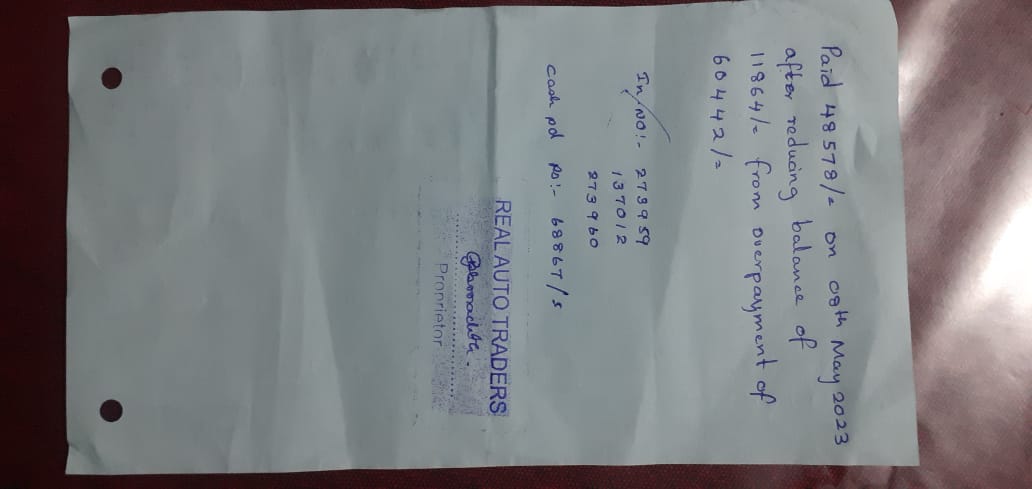 Paid 48578/= on 08th May 2023
after reducing balance of
11864/= from overpayment of
60442/=
In/NO:- 273959
137012
273960
cash pd RO:- 68867/s
REAL AUTO TRADERS
Proprietor